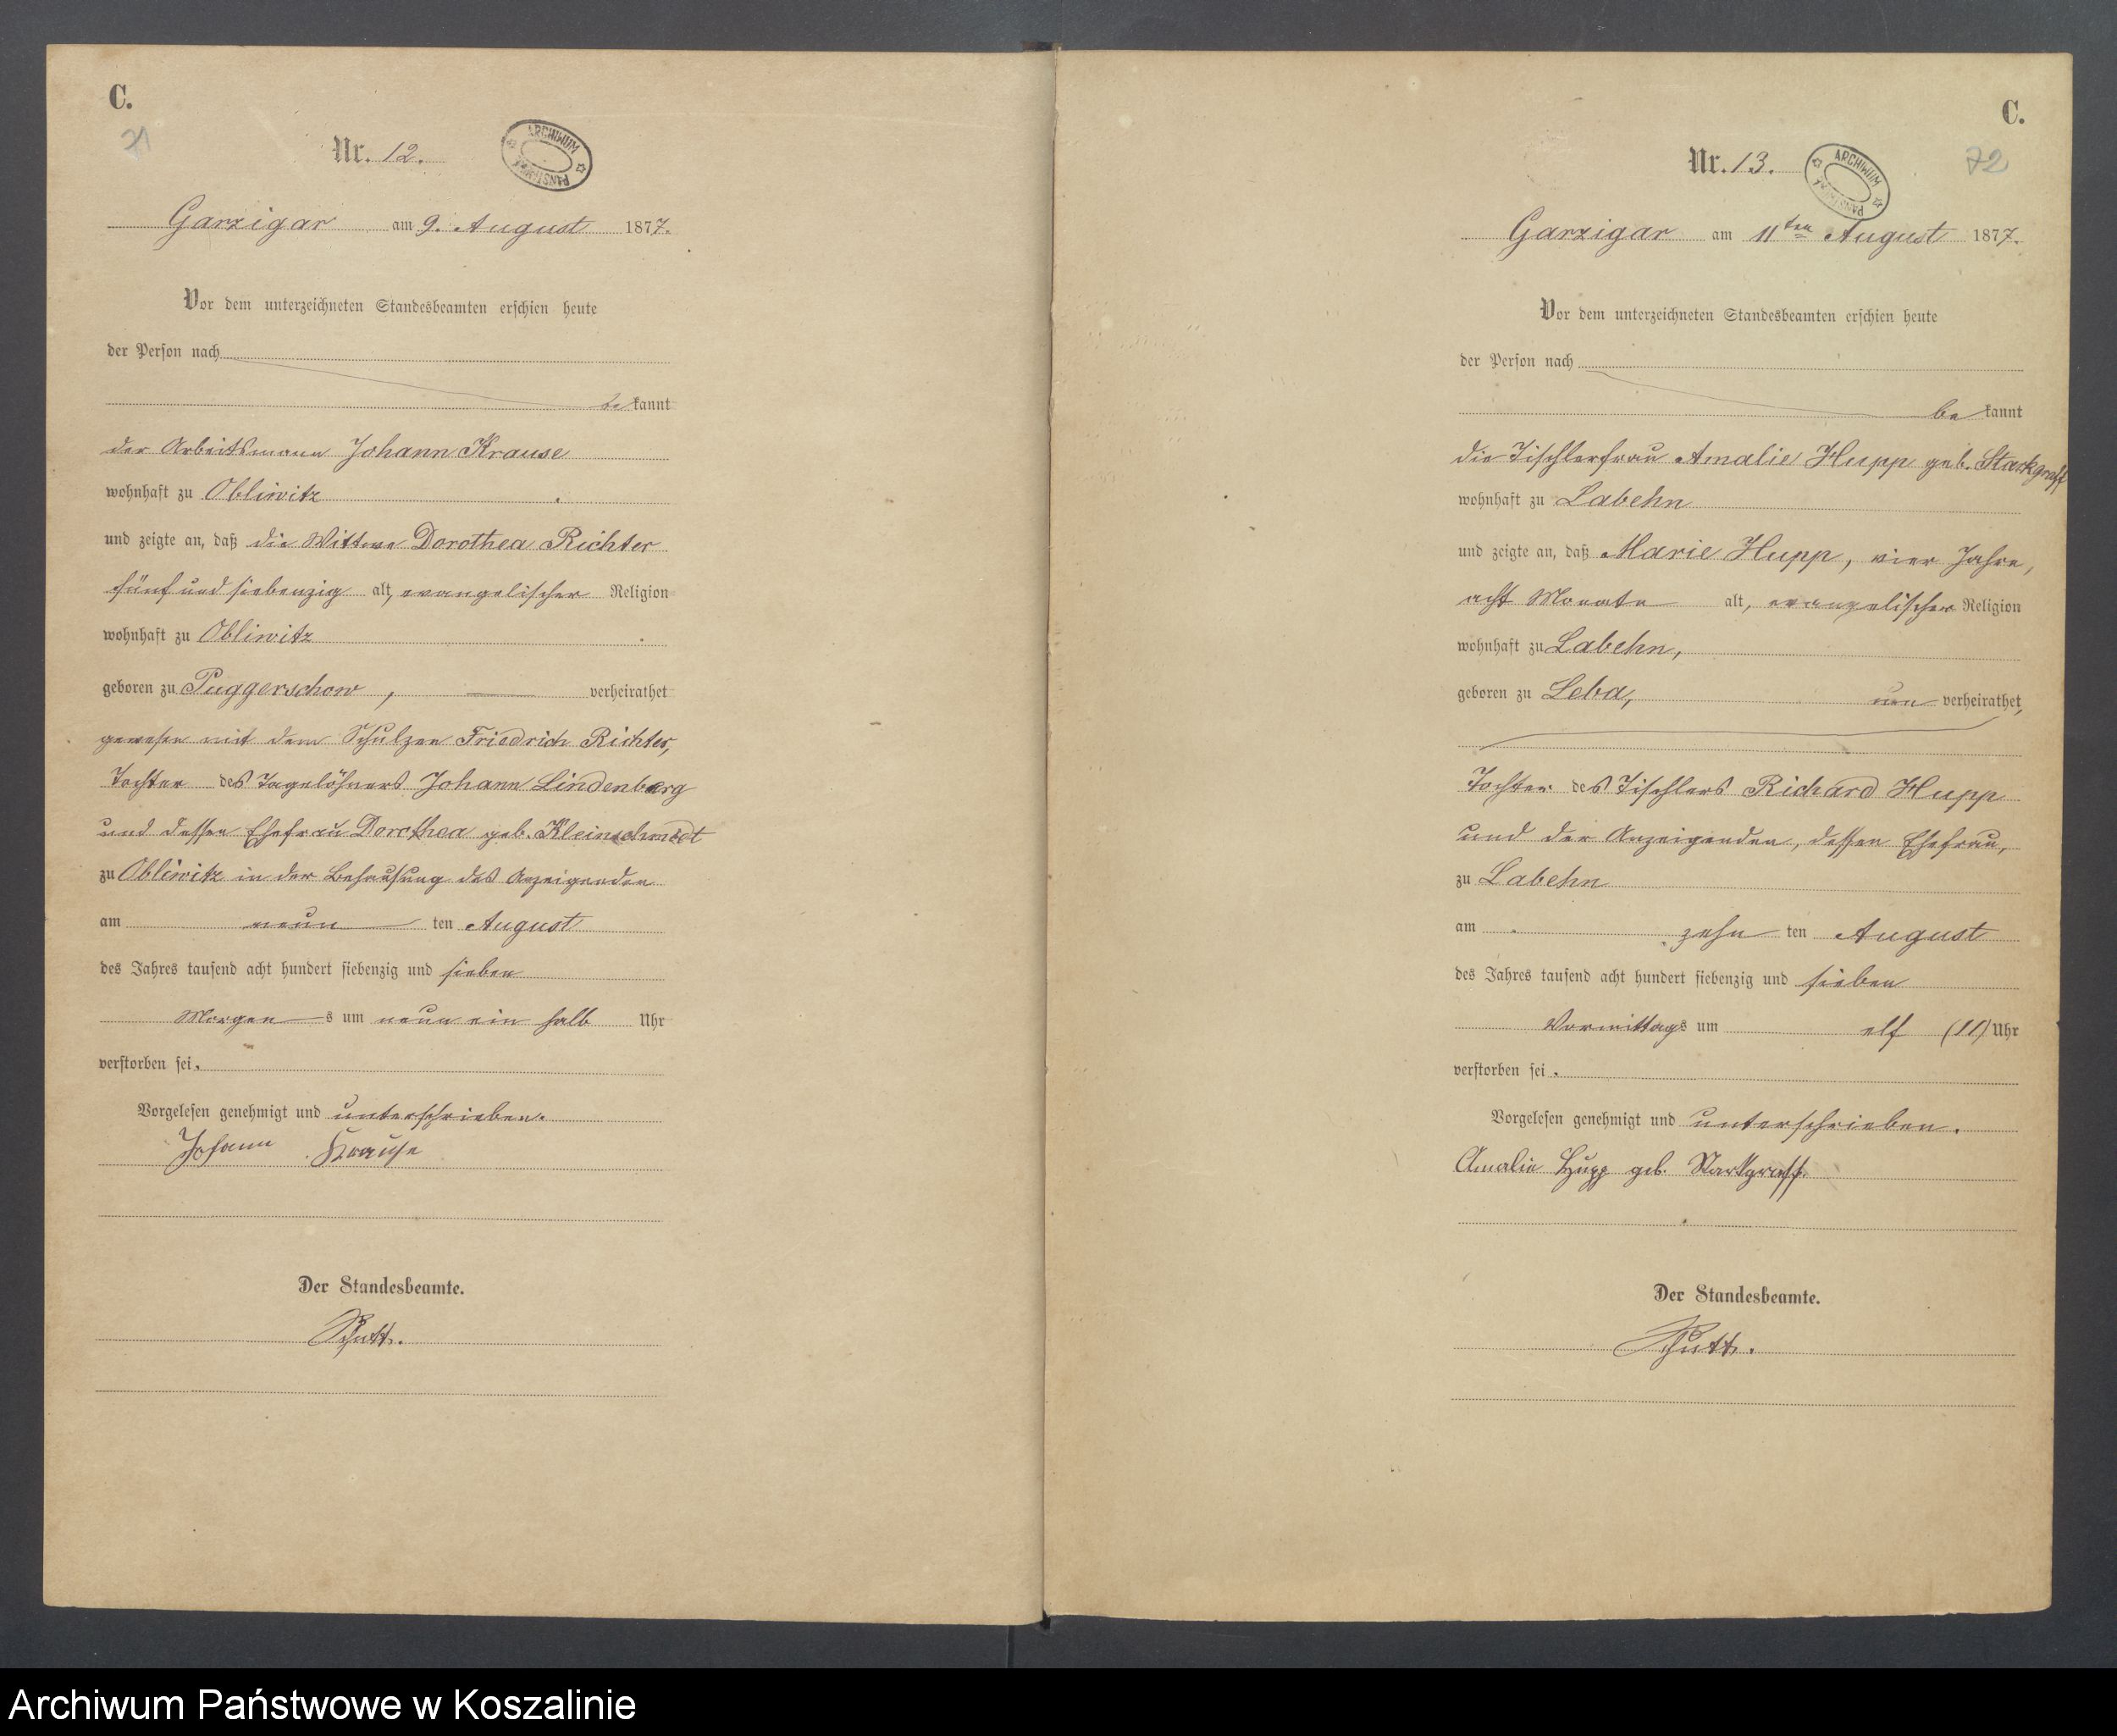 C.
71
Nr. 12.
ARCHIWUM PAŃSTWOWE
Garzigar am 9. August 1877.
Vor dem unterzeichneten Standesbeamten erschien heute
der Person nach
be kannt
der Arbeitsmann Johann Krause
wohnhaft zu Obliwitz
und zeigte an, daß die Wittwe Dorothea Richter
fünf und siebenzig alt, evangelischer Religion
wohnhaft zu Obliwitz
geboren zu Puggerschow, verheirathet
gewesen mit dem Schulzen Friedrich Richter,
Tochter des Tagelöhners Johann Lindenberg
und dessen Ehefrau Dorothea geb. Kleinschmidt
zu Obliwitz in der Behausung des Anzeigenden
am neun ten August
des Jahres tausend acht hundert siebenzig und sieben
Morgen s um neun ein halb Uhr
verstorben sei.
Vorgelesen genehmigt und unterschrieben.
Johann Krause
Der Standesbeamte.
C.
72
Nr. 13.
ARCHIWUM PAŃSTWOWE
Garzigar am 11ten August 1877.
Vor dem unterzeichneten Standesbeamten erschien heute
der Person nach
be kannt
die Tischlerfrau Amalie Hupp geb. Starkgraff
wohnhaft zu Labehn
und zeigte an, daß Marie Hupp, vier Jahre,
acht Monate alt, evangelischer Religion
wohnhaft zu Labehn,
geboren zu Leba, un verheirathet,
Tochter des Tischlers Richard Hupp
und der Anzeigenden, dessen Ehefrau,
zu Labehn
am zehn ten August
des Jahres tausend acht hundert siebenzig und sieben
Vormittags um elf (11) Uhr
verstorben sei.
Vorgelesen genehmigt und unterschrieben.
Amalie Hupp geb. Starkgraff.
Der Standesbeamte.
Archiwum Państwowe w Koszalinie